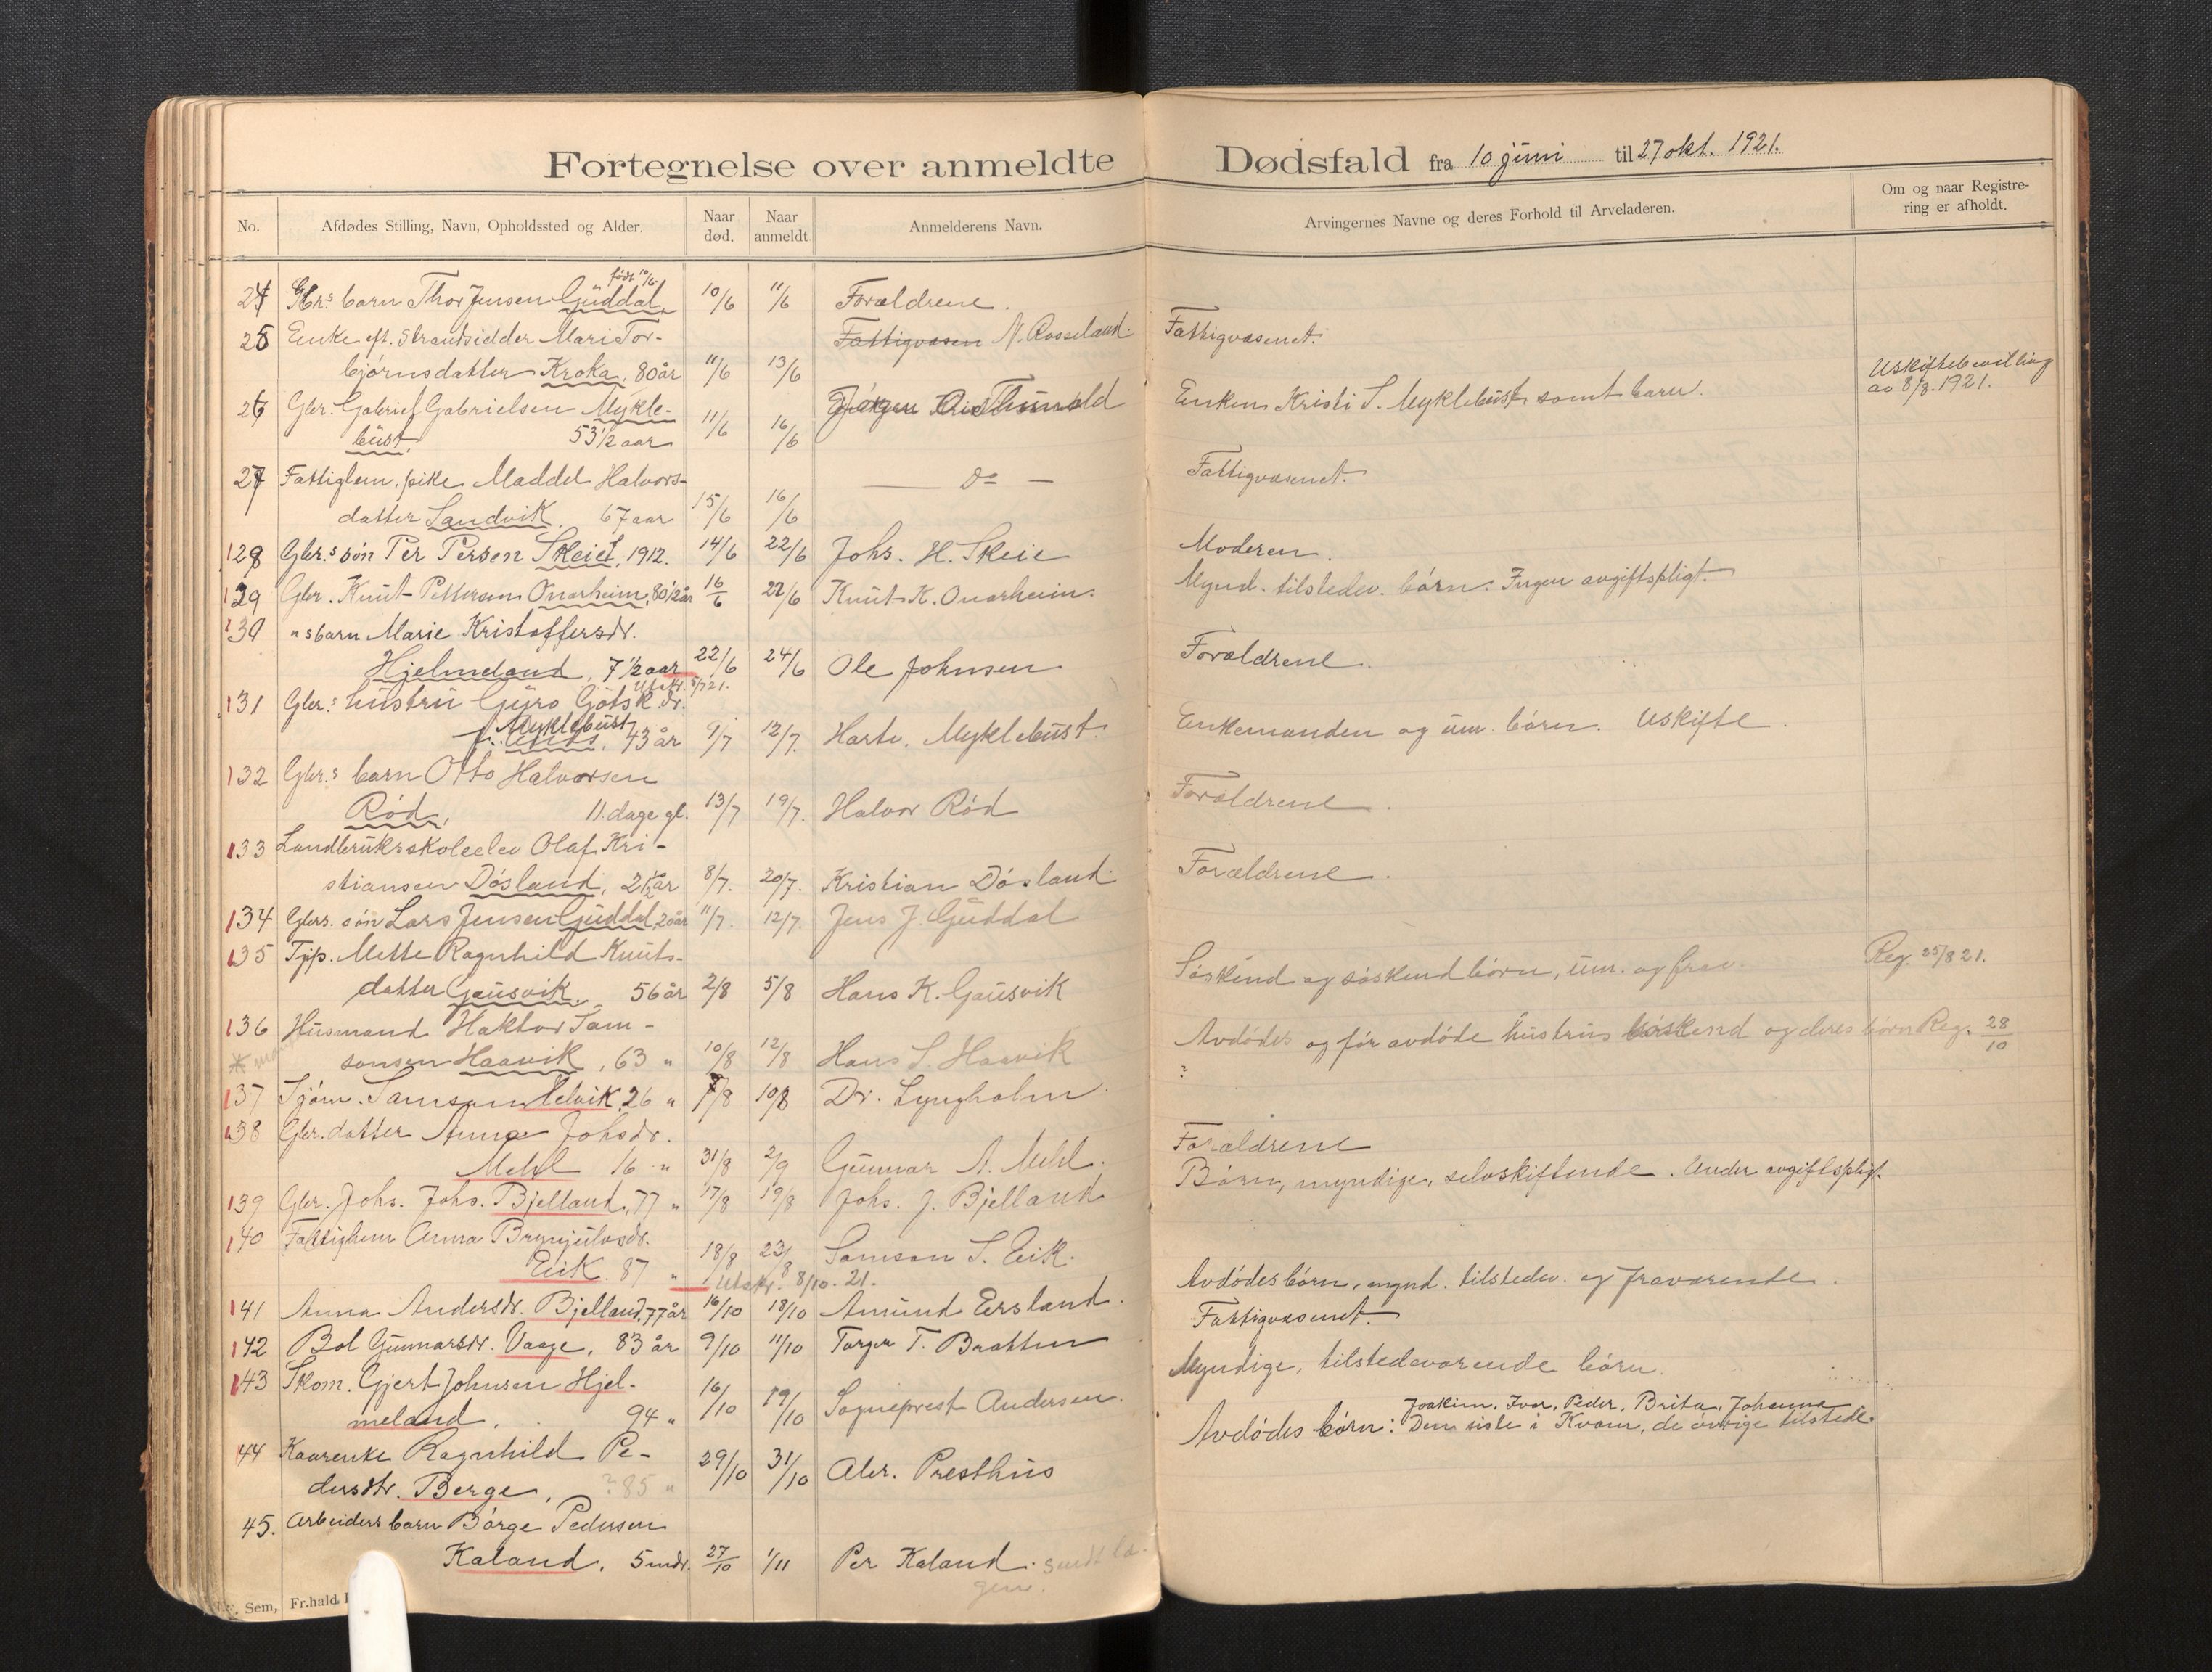 Fortegnelse over anmeldte Dødsfald fra 10 juni til 27 okt. 1921.
No. Afdødes Stilling, Navn, Opholdssted og Alder. Naar død. Naar anmeldt Anmelderens Navn. Arvingernes Navne og deres Forhold til Arveladeren. Om og naar Registrering er afholdt.
født 10/6.
24 Gbr.s barn Thor Jensen Guddal, 10/6 11/6 Forældrene.
25 Enke eft. Strandsidder Mari Tor- Fattigvæsen N. Rosseland. Fattigvæsenet.
bjørnsdatter Kroka, 80 år 11/6 13/6
26 Gbr. Gabriel Gabrielsen Mykle- Enken Kristi S. Myklebust samt barn. Uskiftebevilling av 8/8. 1921.
bust, 53 1/2 aar 11/6 16/6
27 Fattiglem, pike Maddel Halvors- — Do — Fattigvæsenet.
datter Sandvik, 67 aar 15/6 16/6
128 Gbr.s søn Per Persen Skeie, f. 1912. 14/6 22/6 Johs. H. Skeie Moderen.
129 Gbr. Knut Pettersen Onarheim, 80 1/2 år 16/6 22/6 Knut K. Onarheim. Mynd. tilstedev. børn. Ingen avgiftspligt.
130 " s barn Marie Kristoffersdr.
Hjelmeland, 7 1/2 aar 22/6 24/6 Ole Johnsen Forældrene.
Utskr. 5/7 21.
131 Gbr.s hustru Guro Gotsk.dr.
Myklebust, 43 år 9/7 12/7. Hartv. Myklebust. Enkemanden og um. børn. Uskifte.
132 Gbr.s barn Otto Halvorsen
Rød, 11 dage gl. 13/7 19/7. Halvor Rød Forældrene.
133 Landbruksskoleelev Olaf Kri-
stiansen Døsland, 21 1/2 år 8/7. 20/7. Kristian Døsland. Forældrene.
134 Gbrs. søn Lars Jensen Guddal, 20 år 11/7. 12/7. Jens J. Guddal
135 Tjp. Mette Ragnhild Knuts-
datter Gausvik, 56 år 2/8 5/8 Hans K. Gausvik Søskend og søskendbørn, um. og frav. Reg. 25/8 21.
136 Husmand Haktor Sam-
sonsen Haavik, 63 " 10/8 12/8 Hans S. Haavik Avdødes og før avdøde hustrus søskend og deres børn Reg. 28/10
137 Sjøm. Samson Ølvik, 26 " 7/8 10/8 Dr. Lyngholm ?
138 Gbr. datter Anna Johsdr.
Mehl 16 " 31/8 2/9 Gunnar A. Mehl. Forældrene
139 Gbr. Johs. Johs. Bjelland, 77 " 17/8 19/8 Johs. J. Bjelland Børn, myndige, selvskiftende. Under avgiftspligt.
140 Fattiglem Anna Brynjulvsdr.
Eik 87 " 18/8 23/8 Samson S. Eik.
Utskr. 8/10. 21.
141 Anna Andersdr. Bjelland, 77 år 16/10 18/10 Amund Ersland. Avdødes børn, mynd. tilstedev. og fraværende.
142 Bol Gunnarsdr. Vaage, 83 år 9/10 11/10 Torger T. Bratten Fattigvæsenet.
143 Skom. Gjert Johnsen Hjel- Myndige, tilstedeværende børn.
meland, 94 " 16/10 19/10 Sogneprest Andersen.
Joakim, Ivar, Peder, Brita, Johanna.
44 Kaarenke Ragnhild Pe- Avdødes børn: Den siste i Kvam, de øvrige tilstede.
dersdtr. Berge, ? 85 " 29/10 31/10 Aler. Presthus
45. Arbeiders barn Børge Pedersen
Kaland, 5 mdr. 27/10 1/11 Per Kaland.
Sem, Fr.hald